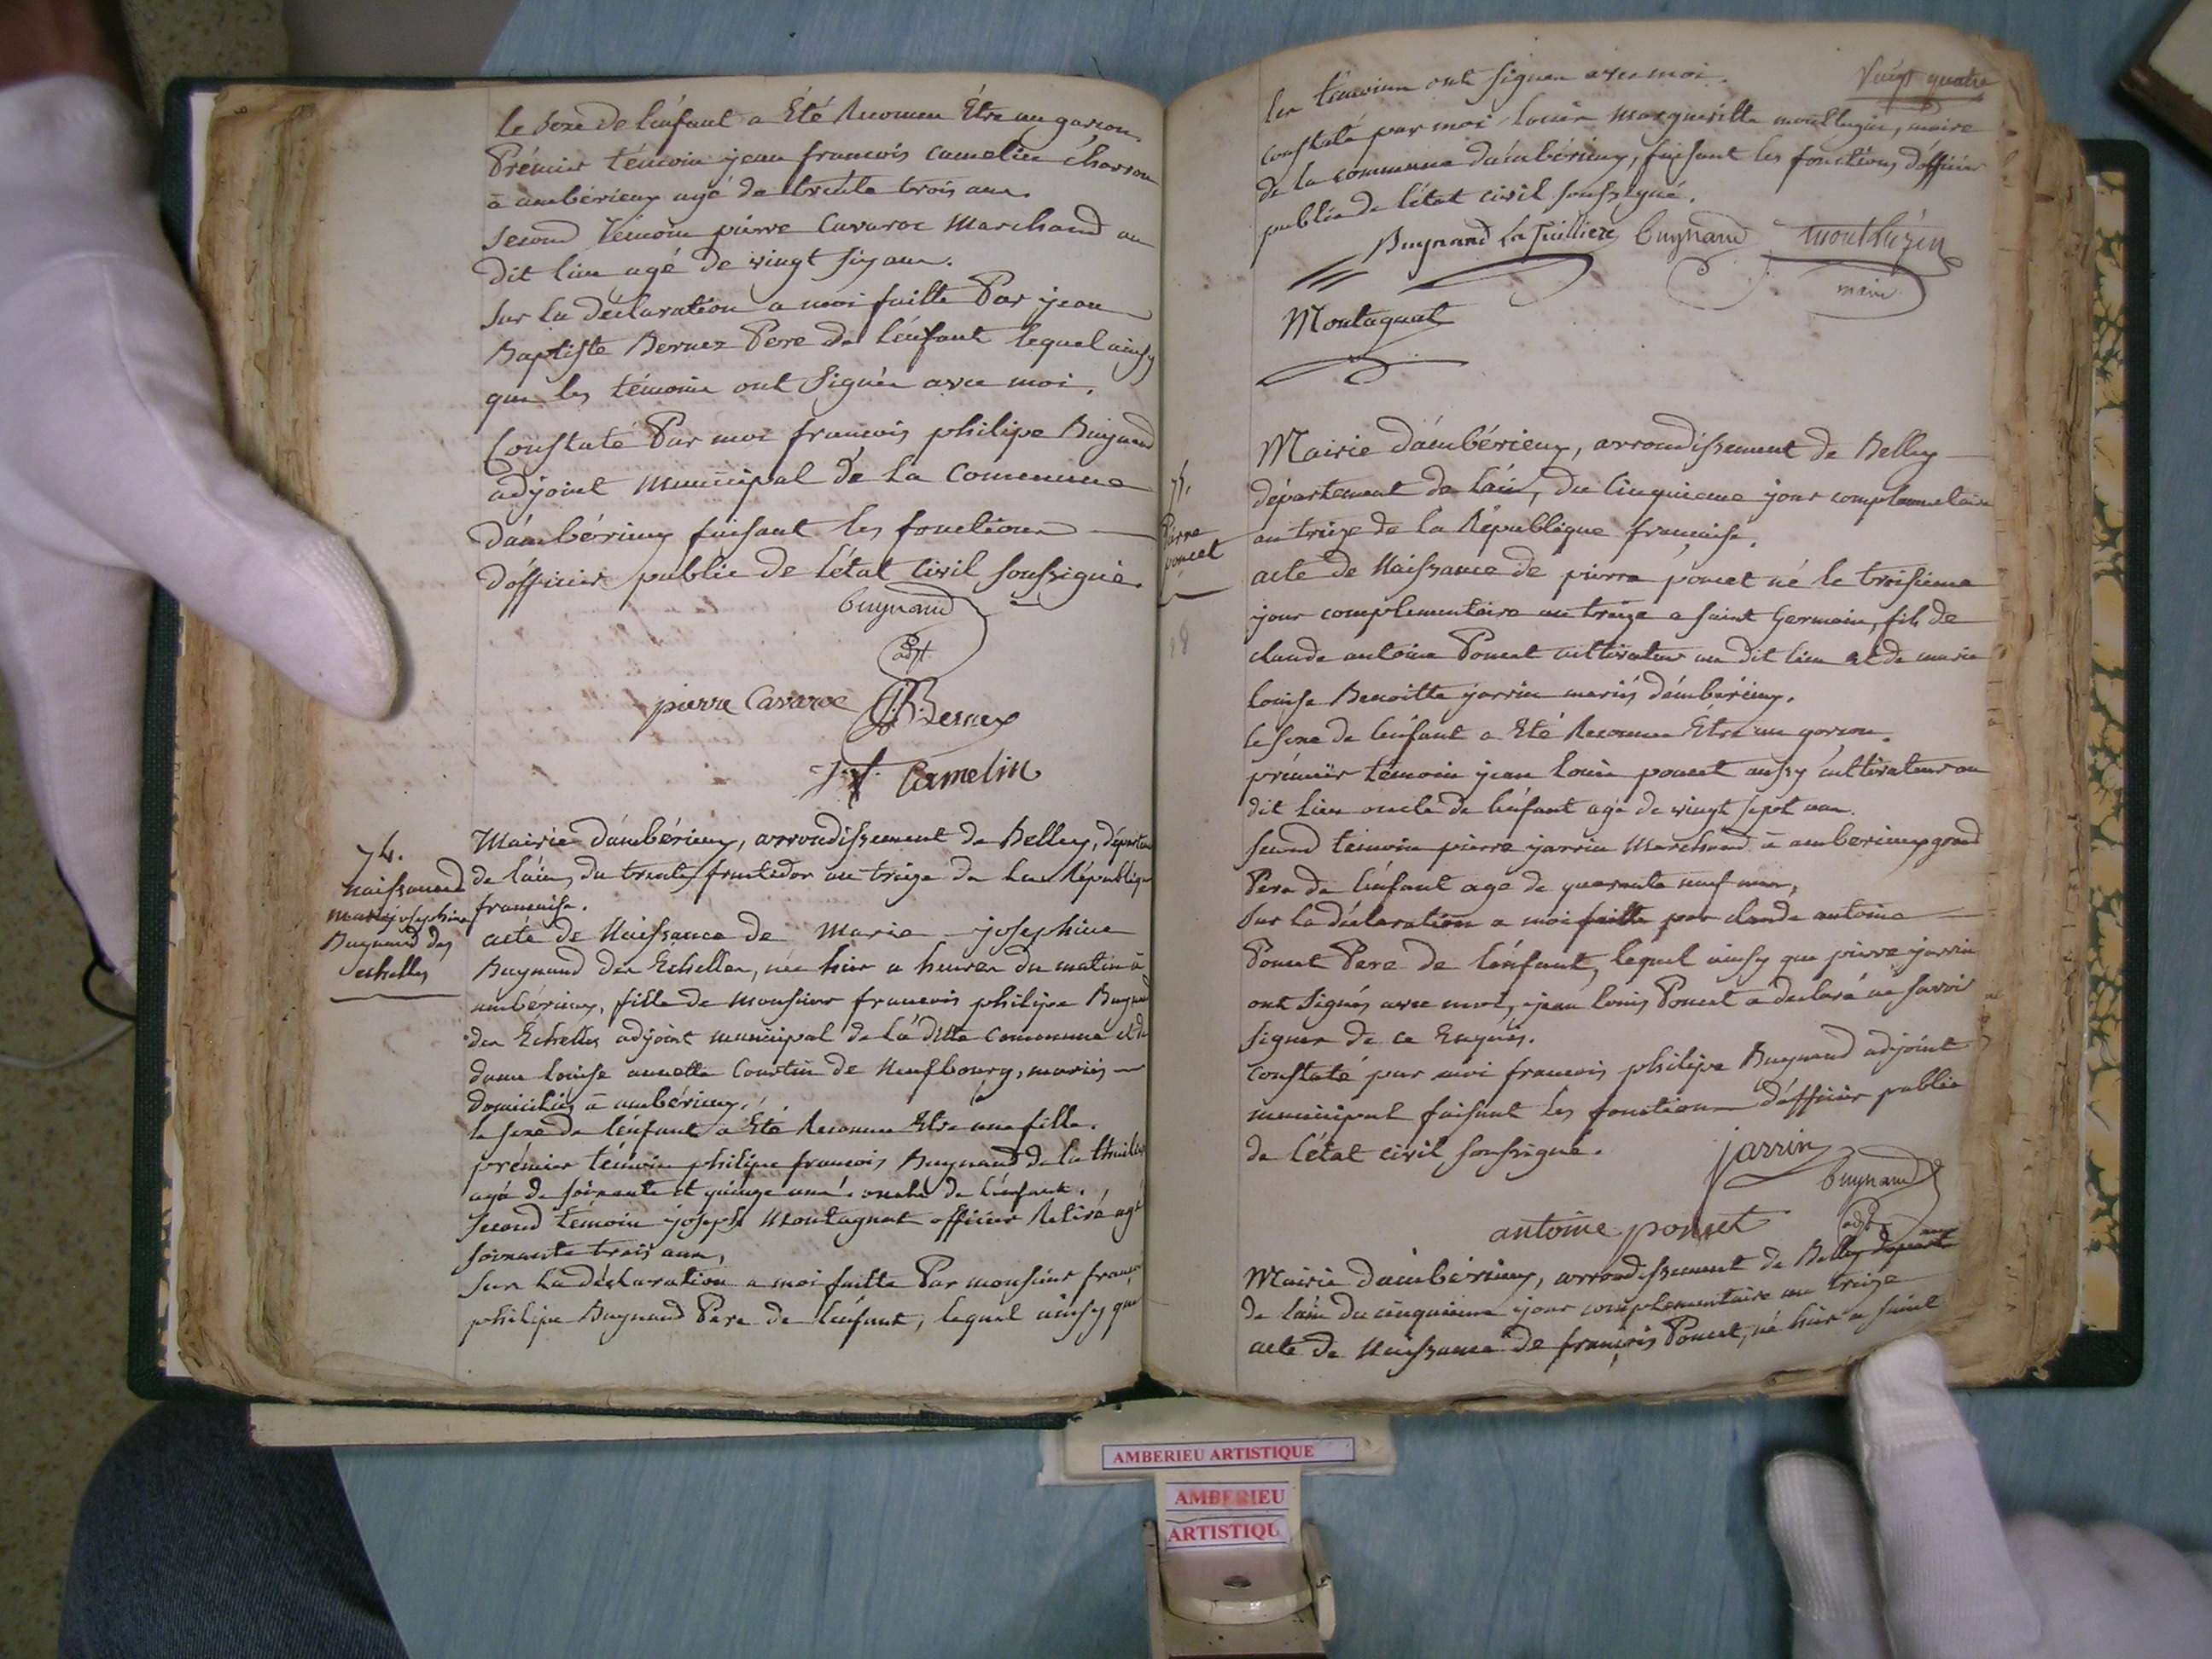 le sexe de lénfant a Été Reconnu Être un garcon
Prémier témoin jean francois camelin charron
à ambérieux agé de trente trois ans.
second Témoin pierre Cavaroc Marchand au
dit lieu agé de vingt six ans.
sur la déclaration a moi faitte Par jean
Baptiste Bernex Pere de lénfant lequel ainsy
que les témoins ont Signés avec moi.
Constaté Par moi francois philipe Buynand
adjoint municipal de la Commune
d'ambérieux faisant les fonctions
d'officier public de l'état Civil soussigné.
buynand
adjt
pierre Cavaroc JB Bernex
J. f. Camelin
74.
naissance
marie josephine
Buynand des
echelles
Mairie d'ambérieux, arrondissement de Belley, départem
de lain, du trente fructidor an treize de La République
francaise.
acte de Naissance de Marie josephine
Buynand des Echelles, née hier a heures du matin à
ambérieux, fille de monsieur francois philipe Buynand
des Echelles adjoint municipal de la ditte Commune et de
dame louise annette Courtin de Neufbourg, mariés
domiciliés à ambérieux.
le sexe de lénfant a Eté Reconnu Etre une fille.
prémier témoin philipe francois Buynand de la thuiliere
agé de soixante et quinze ans oncle de lénfant.
second témoin joseph Montagnat officier Retiré agé
soixante trois ans,
sur la déclaration a moi faitte Par monsieur francois
philipe Buynand Pere de lénfant, lequel ainsy que
Vingt quatre
les témoins ont signés avec moi.
constaté par moi louis margueritte monthuzin, maire
de la commune d'ambérieux, faisant les fonctions d'officier
public de l'état civil soussigné.
Buynand La Tuilliere buynand monthuzin
maire
Montagnat
75.
Pierre
poncet
18
Mairie d'ambérieux, arrondissement de Belley
département de láin, du cinquieme jour complementaire
an treize de la République francaise.
acte de Naissance de pierre poncet né le troisieme
jour complementaire an treize a saint Germain, fils de
claude antoine Poncet cultivateur au dit lieu et de marie
louise Benoitte jarrin mariés d'ambérieux.
le sexe de lénfant a Eté Reconnu Être un garcon.
prémier témoin jean louis poncet aussy cultivateur au
dit lieu oncle de lénfant agé de vingt sept ans.
second témoin pierre jarrin Marchand à amberieux grand
Pere de lénfant agé de quarante neuf ans,
sur la déclaration a moi faitte par claude antoine
Poncet Pere de lénfant, lequel ainsy que pierre jarrin
ont Signés avec moi, jean louis Poncet a declaré ne savoir
signer de ce Enquis.
Constaté par moi francois philipe Buynand adjoint
municipal faisant les fonctions d'officier public
de l'état civil soussigné.
jarrin
buynand
antoine ponset
adjt
Mairie d'ambérieux, arrondissement de Belley départ
de lain du cinquieme jour complementaire an treize
acte de Naissance de françois Poncet, né hier a saint
AMBERIEU ARTISTIQUE
AMBERIEU
ARTISTIQU